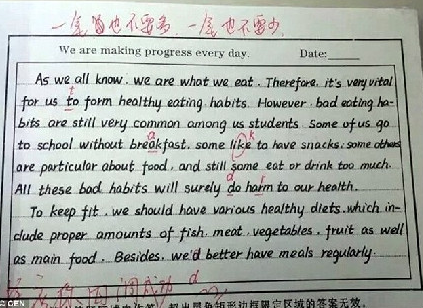 一定皆也不要多,一定也不要少
We are making progress every day. Date:
As we all know, we are what we eat. Therefore, it's very vital
t
for us to form healthy eating habits. However, bad eating ha-
bits are still very common among us students. Some of us go
a k
to school without breakfast, some like to have snacks, some others
are particular about food, and still some eat or drink too much.
d r
All these bad habits will surely do harm to our health.
To keep fit, we should have various healthy diets, which in-
clude proper amounts of fish, meat, vegetables, fruit as well
as main food. Besides, we'd better have meals regularly.
d
© CEN
超出黑色矩形边框限定区域的答案无效